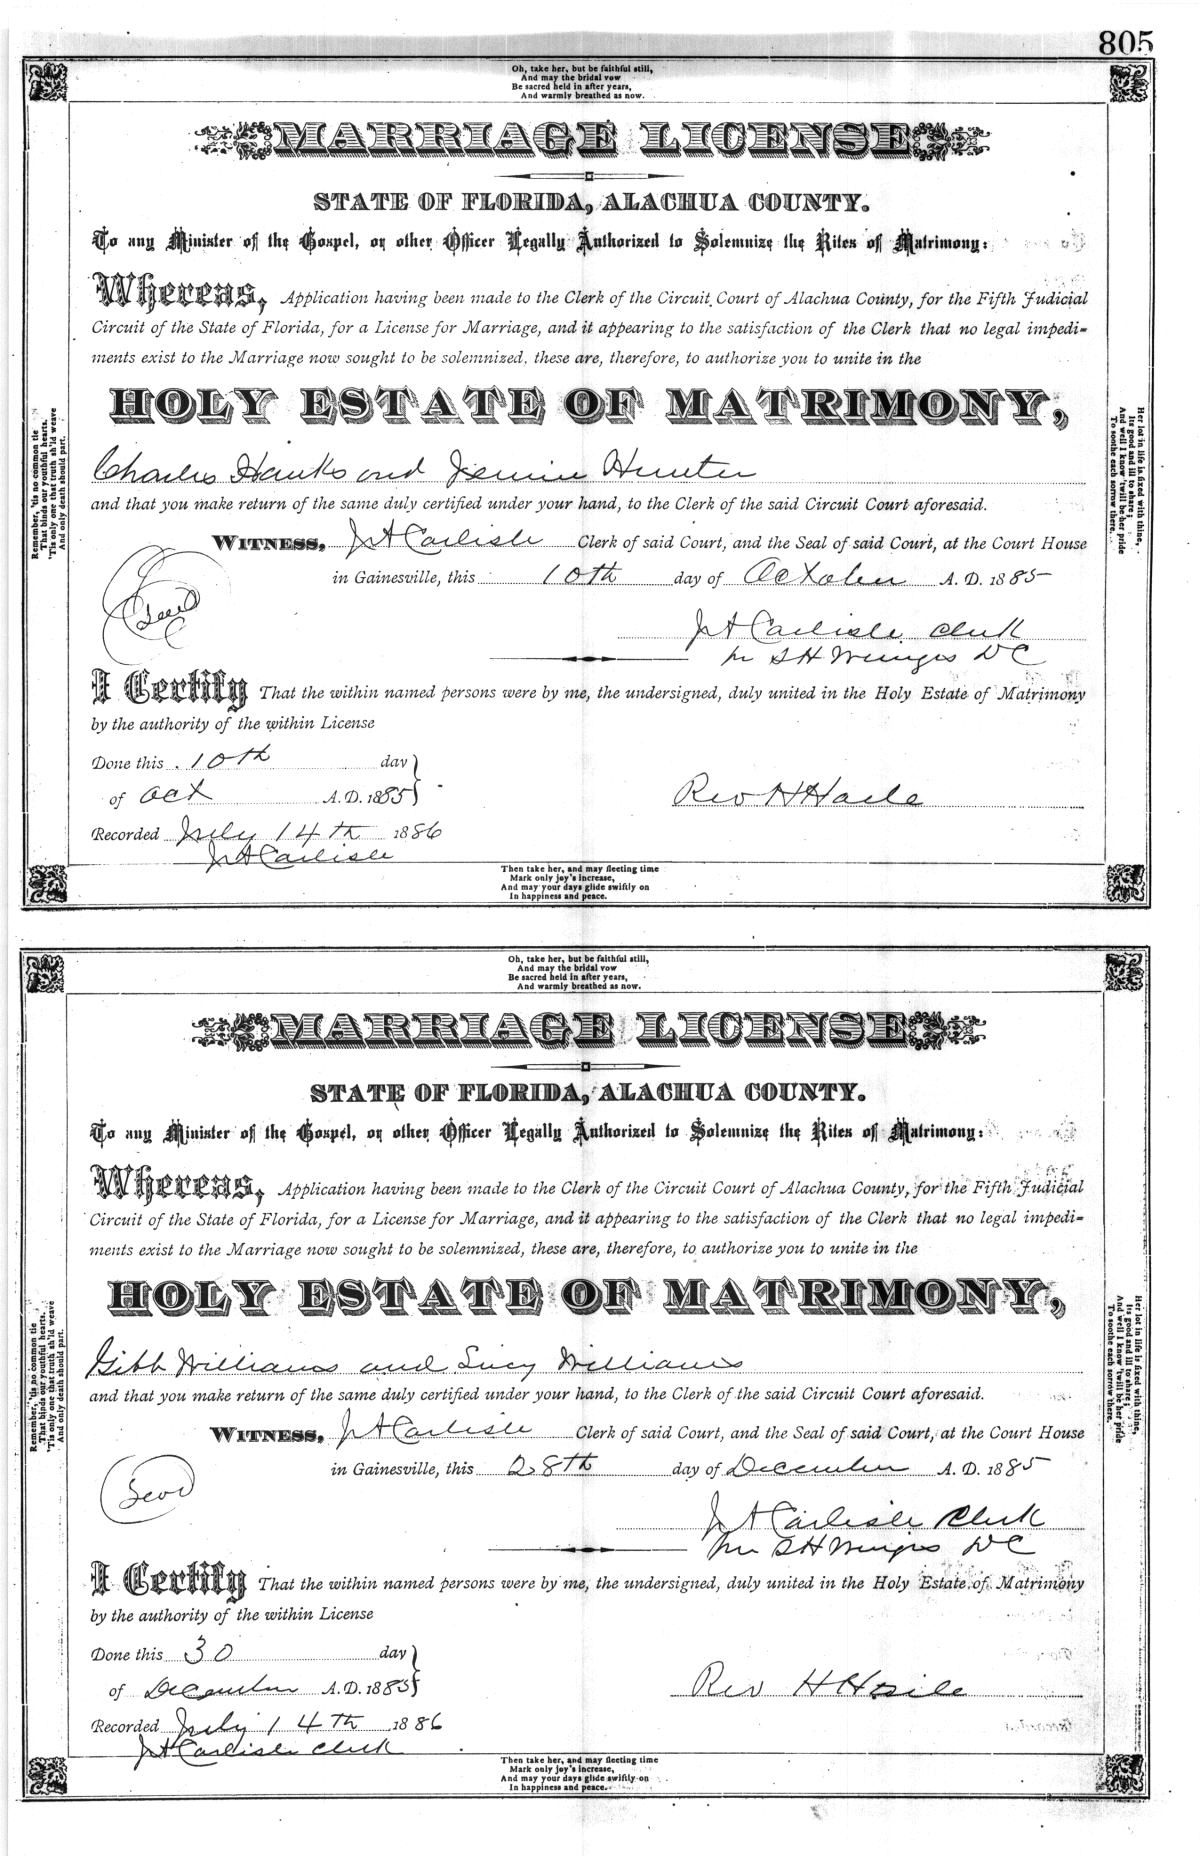 805
Oh, take her, but be faithful still,
And may the bridal vow
Be sacred held in after years,
And warmly breathed as now.
MARRIAGE LICENSE
STATE OF FLORIDA, ALACHUA COUNTY.
To any Minister of the Gospel, or other Officer Legally Authorized to Solemnize the Rites of Matrimony:
Whereas, Application having been made to the Clerk of the Circuit Court of Alachua County, for the Fifth Judicial
Circuit of the State of Florida, for a License for Marriage, and it appearing to the satisfaction of the Clerk that no legal impedi-
ments exist to the Marriage now sought to be solemnized, these are, therefore, to authorize you to unite in the
HOLY ESTATE OF MATRIMONY,
Charles Hanks and Jennie Hunter
and that you make return of the same duly certified under your hand, to the Clerk of the said Circuit Court aforesaid.
WITNESS, J A Carlisle Clerk of said Court, and the Seal of said Court, at the Court House
in Gainesville, this 10th day of October A. D. 1885
Seal
J A Carlisle Clerk
S H DC
I Certify That the within named persons were by me, the undersigned, duly united in the Holy Estate of Matrimony
by the authority of the within License
Done this 10th day
of Oct A. D. 1885
Rev H Haile
Recorded July 14th 1886
J A Carlisle
Remember, 'tis no common tie
That binds our youthful hearts,
'Tis only one that truth sh'ld weave
And only death should part.
Her lot in life is fixed with thine,
Its good and ill to share;
And well I know 'twill be her pride
To soothe each sorrow there.
Then take her, and may fleeting time
Mark only joy's increase,
And may your days glide swiftly on
In happiness and peace.
Oh, take her, but be faithful still,
And may the bridal vow
Be sacred held in after years,
And warmly breathed as now.
MARRIAGE LICENSE
STATE OF FLORIDA, ALACHUA COUNTY.
To any Minister of the Gospel, or other Officer Legally Authorized to Solemnize the Rites of Matrimony:
Whereas, Application having been made to the Clerk of the Circuit Court of Alachua County, for the Fifth Judicial
Circuit of the State of Florida, for a License for Marriage, and it appearing to the satisfaction of the Clerk that no legal impedi-
ments exist to the Marriage now sought to be solemnized, these are, therefore, to authorize you to unite in the
HOLY ESTATE OF MATRIMONY,
Gibb Williams and Lucy Williams
and that you make return of the same duly certified under your hand, to the Clerk of the said Circuit Court aforesaid.
WITNESS, J A Carlisle Clerk of said Court, and the Seal of said Court, at the Court House
in Gainesville, this 28th day of December A. D. 1885
Seal
J A Carlisle Clerk
S H DC
I Certify That the within named persons were by me, the undersigned, duly united in the Holy Estate of Matrimony
by the authority of the within License
Done this 30 day
of December A. D. 1885
Rev H Haile
Recorded July 14th 1886
J A Carlisle Clerk
Remember, 'tis no common tie
That binds our youthful hearts,
'Tis only one that truth sh'ld weave
And only death should part.
Her lot in life is fixed with thine,
Its good and ill to share;
And well I know 'twill be her pride
To soothe each sorrow there.
Then take her, and may fleeting time
Mark only joy's increase,
And may your days glide swiftly on
In happiness and peace.